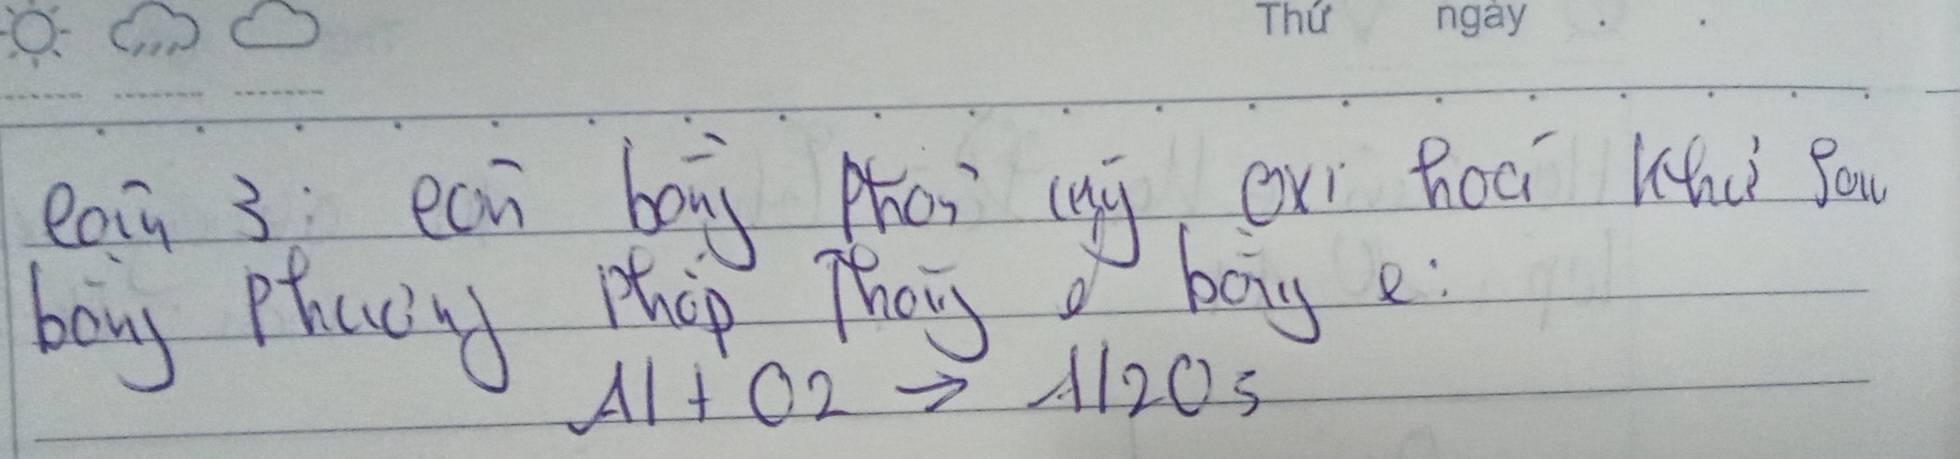 Thứ ngày . .
Câu 3: Cân bằng phản ứng oxi hoá khử sau
bằng phương pháp thăng bằng e:
Al + O2 → Al2O3